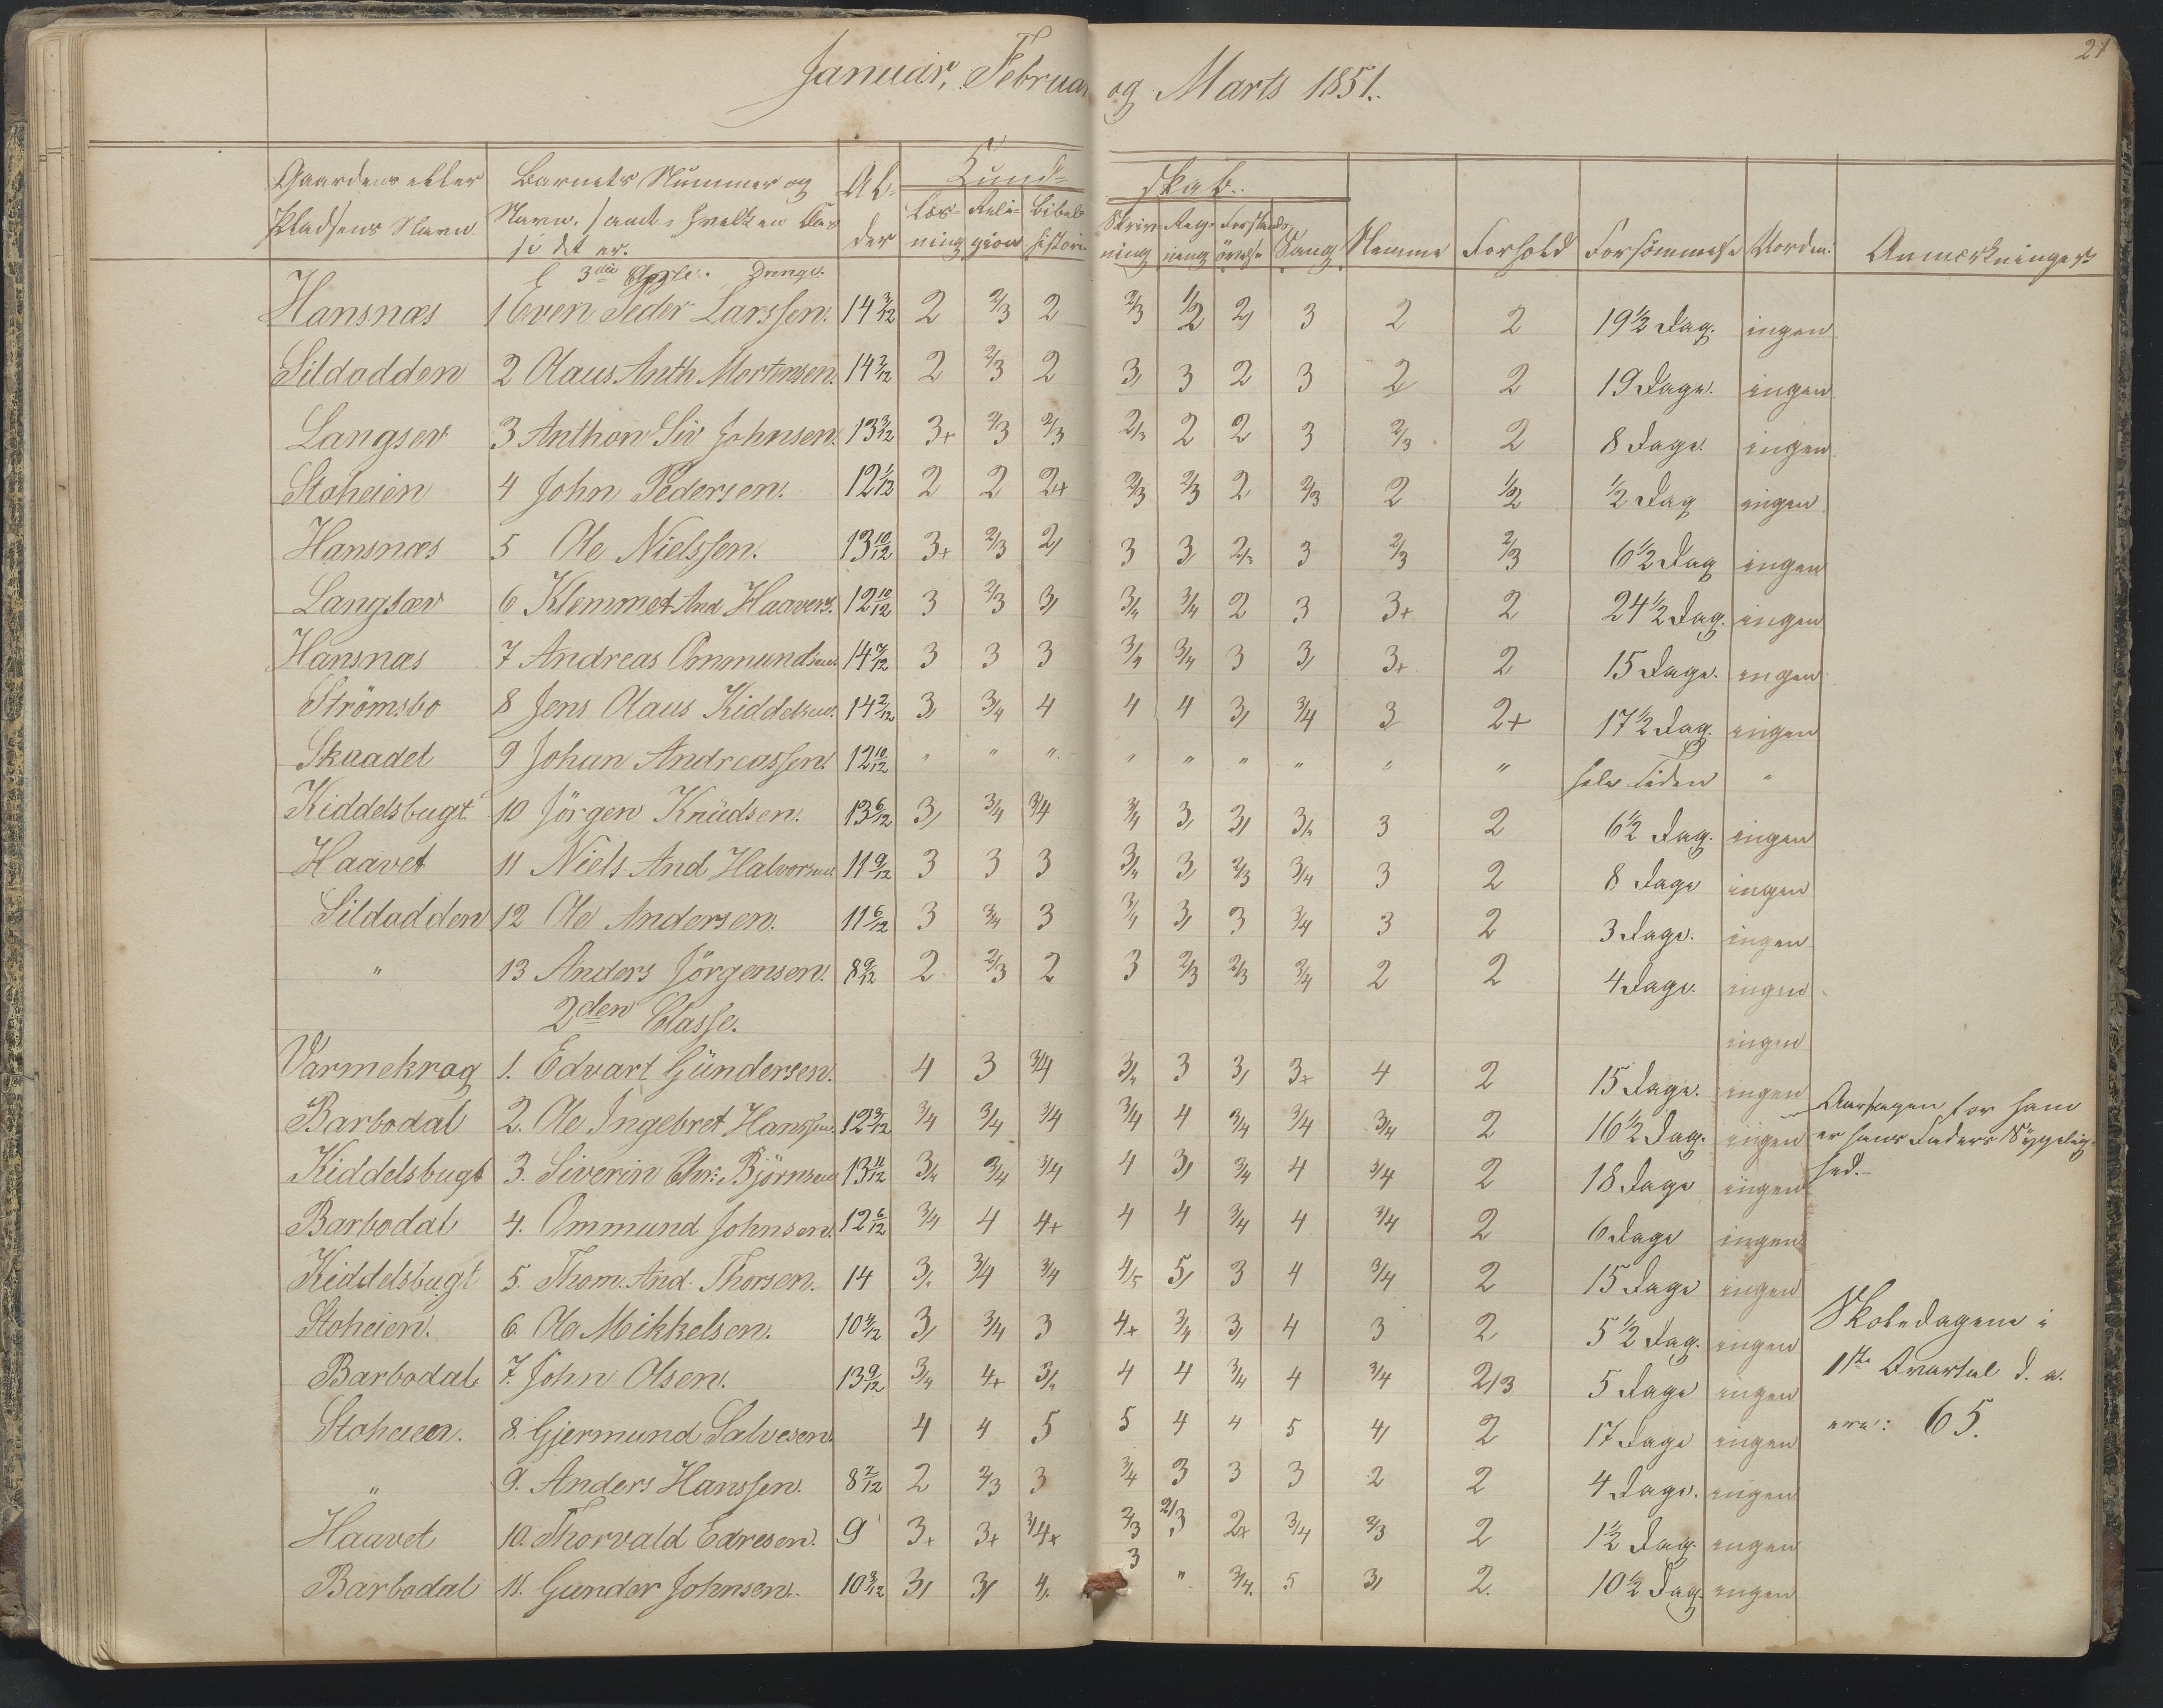 21
Januar, Februar og Marts 1851.
Gaardens eller Pladsens Navn | Barnets Nummer og Navn, samt hvilken Clas se det er. | Al- der | Kund- skab. | Læs- ning | Reli- gion | Bibel- historie | Skriv- ning | Reg- ning | Forstands- øvelse | Sang | Nemme | Forhold | Forsömmelse | Vorden. | Anmærkninger
3die Classe. Drenge.
Hansnæs 1 Even Peder Larssen. 14 3/12 2 2/3 2 2/3 1/2 2, 3 2 2 19 1/2 Dag. ingen
Sildodden 2 Olaus Anth Mortensen. 14 3/12 2 2/3 2 3, 3 2 3 2 2 19 Dage. ingen
Langsev 3 Anthon Siv Johnsen. 13 3/12 3+ 2/3 2/3 2/3 2 2 3 2/3 2 8 Dage. ingen
Stoheien 4 John Pedersen. 12 1/12 2 2 2+ 2/3 2/3 2 2/3 2 1/2 1/2 Dag ingen
Hansnæs 5 Ole Nielssen. 13 10/12 3+ 2/3 2, 3 3, 2/3 3 2/3 2/3 6 1/2 Dag ingen
Langsæv 6 Klemmet And Haavors. 12 10/12 3 2/3 3, 3/4 3/4 2 3 3+ 2 24 1/2 Dag. ingen
Hansnæs 7 Andreas Ommundsen. 14 7/12 3 3 3 3/4 3/4 3 3, 3+ 2 15 Dage. ingen
Strömsbo 8 Jens Olaus Kiddelsen. 14 2/12 3, 3/4 4 4 4 3, 3/4 3 2+ 17 1/2 Dag. ingen
Skaadet 9 Johan Andreassen. 12 10/12 " " " " " " " " " hele Tiden "
Kiddelsbugt 10 Jörgen Knüdsen. 13 6/12 3, 3/4 3/4 3/4 3, 3, 3/4 3 2 6 1/2 Dag. ingen
Haavet 11 Niels And Halvorsen 11 9/12 3 3 3 3/4 3, 2/3 3/4 3 2 8 Dage ingen
Sildodden 12 Ole Andersen. 11 6/12 3 3/4 3 3/4 3, 3 3/4 3 2 3 Dage. ingen
" 13 Anders Jörgensen. 8 9/12 2 2/3 2 3 2/3 2/3 3/4 2 2 4 Dage. ingen
2den Classe.
ingen
Varmekrog 1. Edvart Gündersen. 4 3 3/4 3/4 3 3, 3+ 4 2 15 Dage. ingen
Barbodal 2. Ole Ingebret Hanssen. 12 3/12 3/4 3/4 3/4 3/4 4 3/4 3/4 3/4 2 16 1/2 Dag. ingen Aarsagen for ham er hans Faders Sygelig- hed.
Kiddelsbugt 3. Siverin Chr: Björnsen 13 11/12 3/4 3/4 3/4 4 3, 3/4 4 3/4 2 18 Dage ingen
Barbodal 4. Ommund Johnsen. 12 6/12 3/4 4 4+ 4 4 3/4 4 3/4 2 6 Dage ingen
Kiddelsbugt 5. Thom. And. Thorsen. 14 3/4 3/4 3/4 4/5 5, 3 4 3/4 2 15 Dage ingen
Stoheien. 6. Ole Mikkelsen. 10 4/12 3, 3/4 3 4+ 3/4 3, 4 3 2 5 1/2 Dag. ingen Skoledagene i
Barbodal. 7. John Olsen. 13 9/12 3/4 4+ 3/4 4 4 3/4 4 3/4 2/3 5 Dage ingen 1ste Qvartal d. a.
Stoheien. 8. Gjermund Salvesen. 4 4 5 5 4 4 5 4, 2 17 Dage ingen ere: 65.
" 9. Anders Hanssen. 8 2/12 2 2/3 3 3/4 3 3 3 2 2 4 Dage. ingen
Haavet 10. Thorvald Edresen. 9 3+ 3+ 3/4+ 2/3 2/3 2+ 3/4 2/3 2 1 1/2 Dag. ingen
Barbodal 11. Gunder Johnsen. 10 3/12 3, 3, 4. 3 " 3/4. 5 3, 2. 10 1/2 Dag. ingen